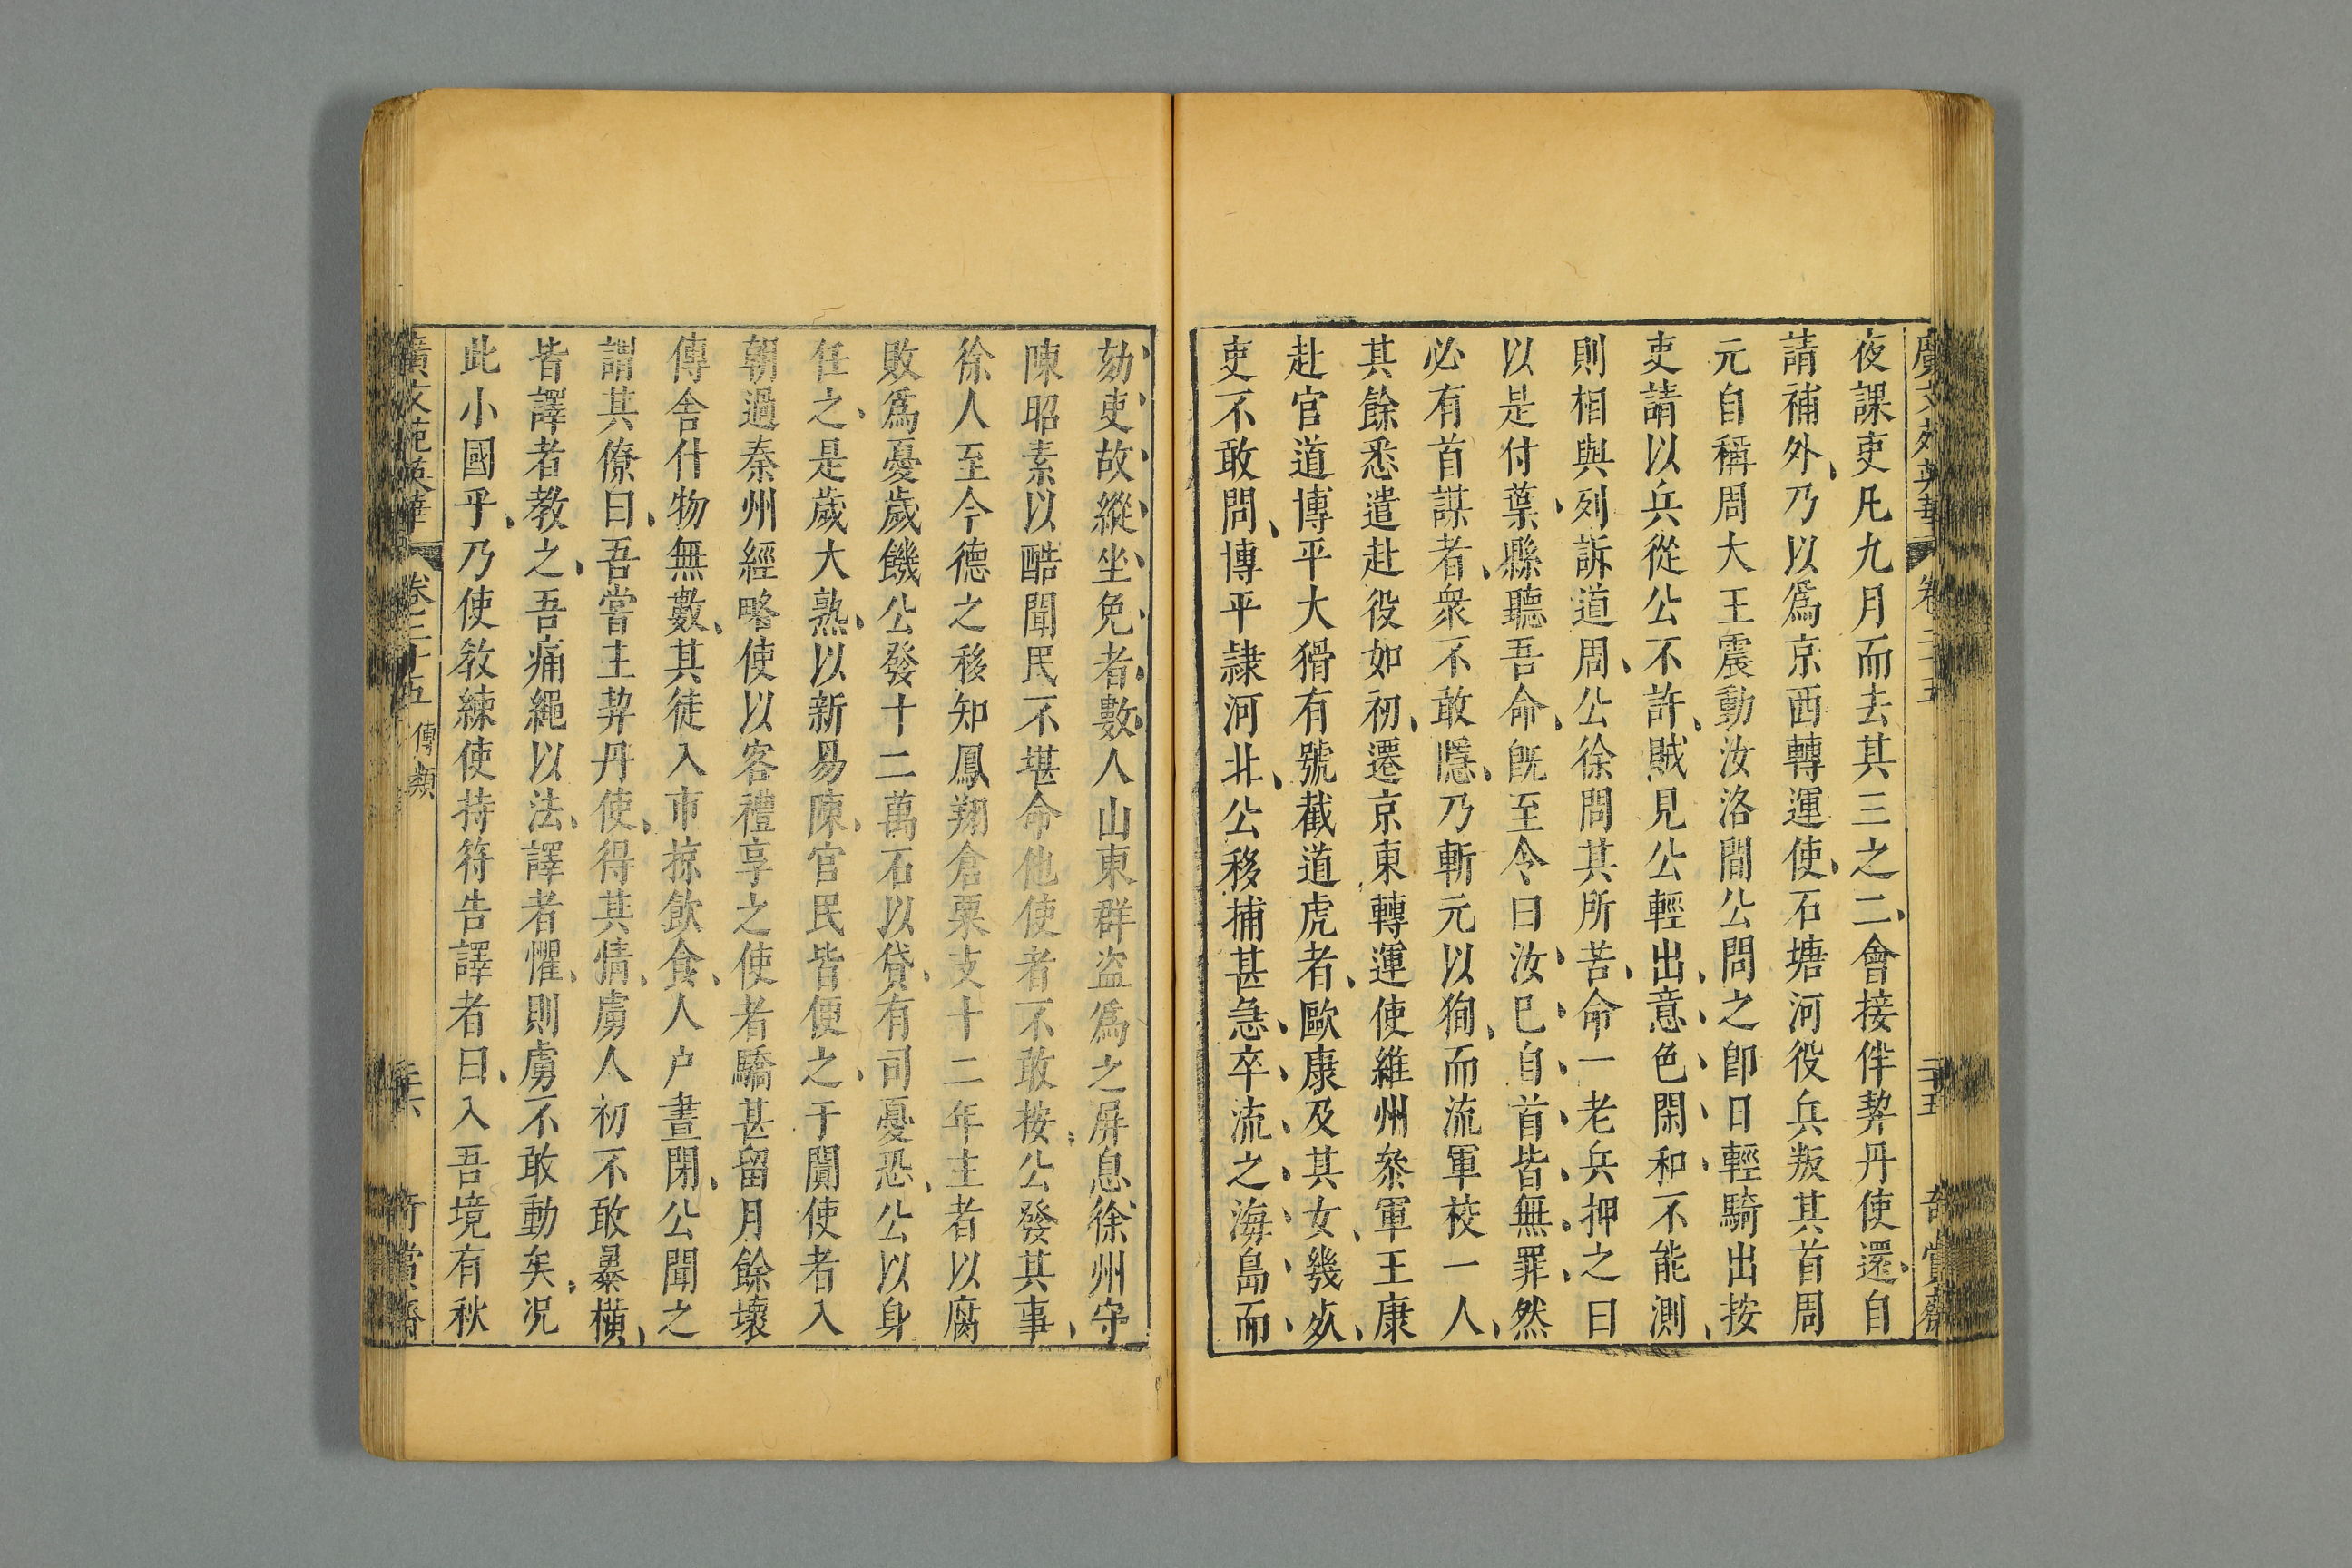 廣文苑英華 卷二十五 二十五 奇賞齋
夜課吏凡九月而去其三之二、會接伴契丹使還、自
請補外、乃以爲京西轉運使、石塘河役兵叛其首周
元自稱周大王震動汝洛間公問之卽日輕騎出按
吏請以兵從公不許、賊見公輕出、意色閑和不能測、
則相與列訴道周、公徐問其所苦、命一老兵押之曰
以是付葉縣聽吾命、旣至令曰汝巳自首皆無罪、然
必有首謀者、衆不敢隱、乃斬元以狥、而流軍校一人、
其餘悉遣赴役如初、遷京東轉運使維州叅軍王康
赴官道博平大猾有號截道虎者、歐康及其女、幾死、
吏不敢問、博平隷河北、公移捕甚急、卒流之海島而
劾吏故縱坐免者數人山東群盜爲之屏息、徐州守
陳昭素以酷聞民不堪命他使者不敢按、公發其事、
徐人至今德之移知鳳翔倉粟支十二年主者以腐
敗爲憂歲饑公發十二萬石以貸、有司憂恐、公以身
任之、是歲大熟、以新易陳、官民皆便之、于闐使者入
朝過秦州經略使以客禮享之使者驕甚留月餘壞
傳舍什物無數、其徒入市掠飲食、人户晝閉、公聞之
謂其僚曰、吾嘗主契丹使、得其情、虜人初不敢暴橫、
皆譯者教之、吾痛繩以法、譯者懼、則虜不敢動矣、况
此小國乎、乃使敎練使持符告譯者曰、入吾境有秋
廣文苑英華 卷二十五 傳類 二十六 奇賞齋